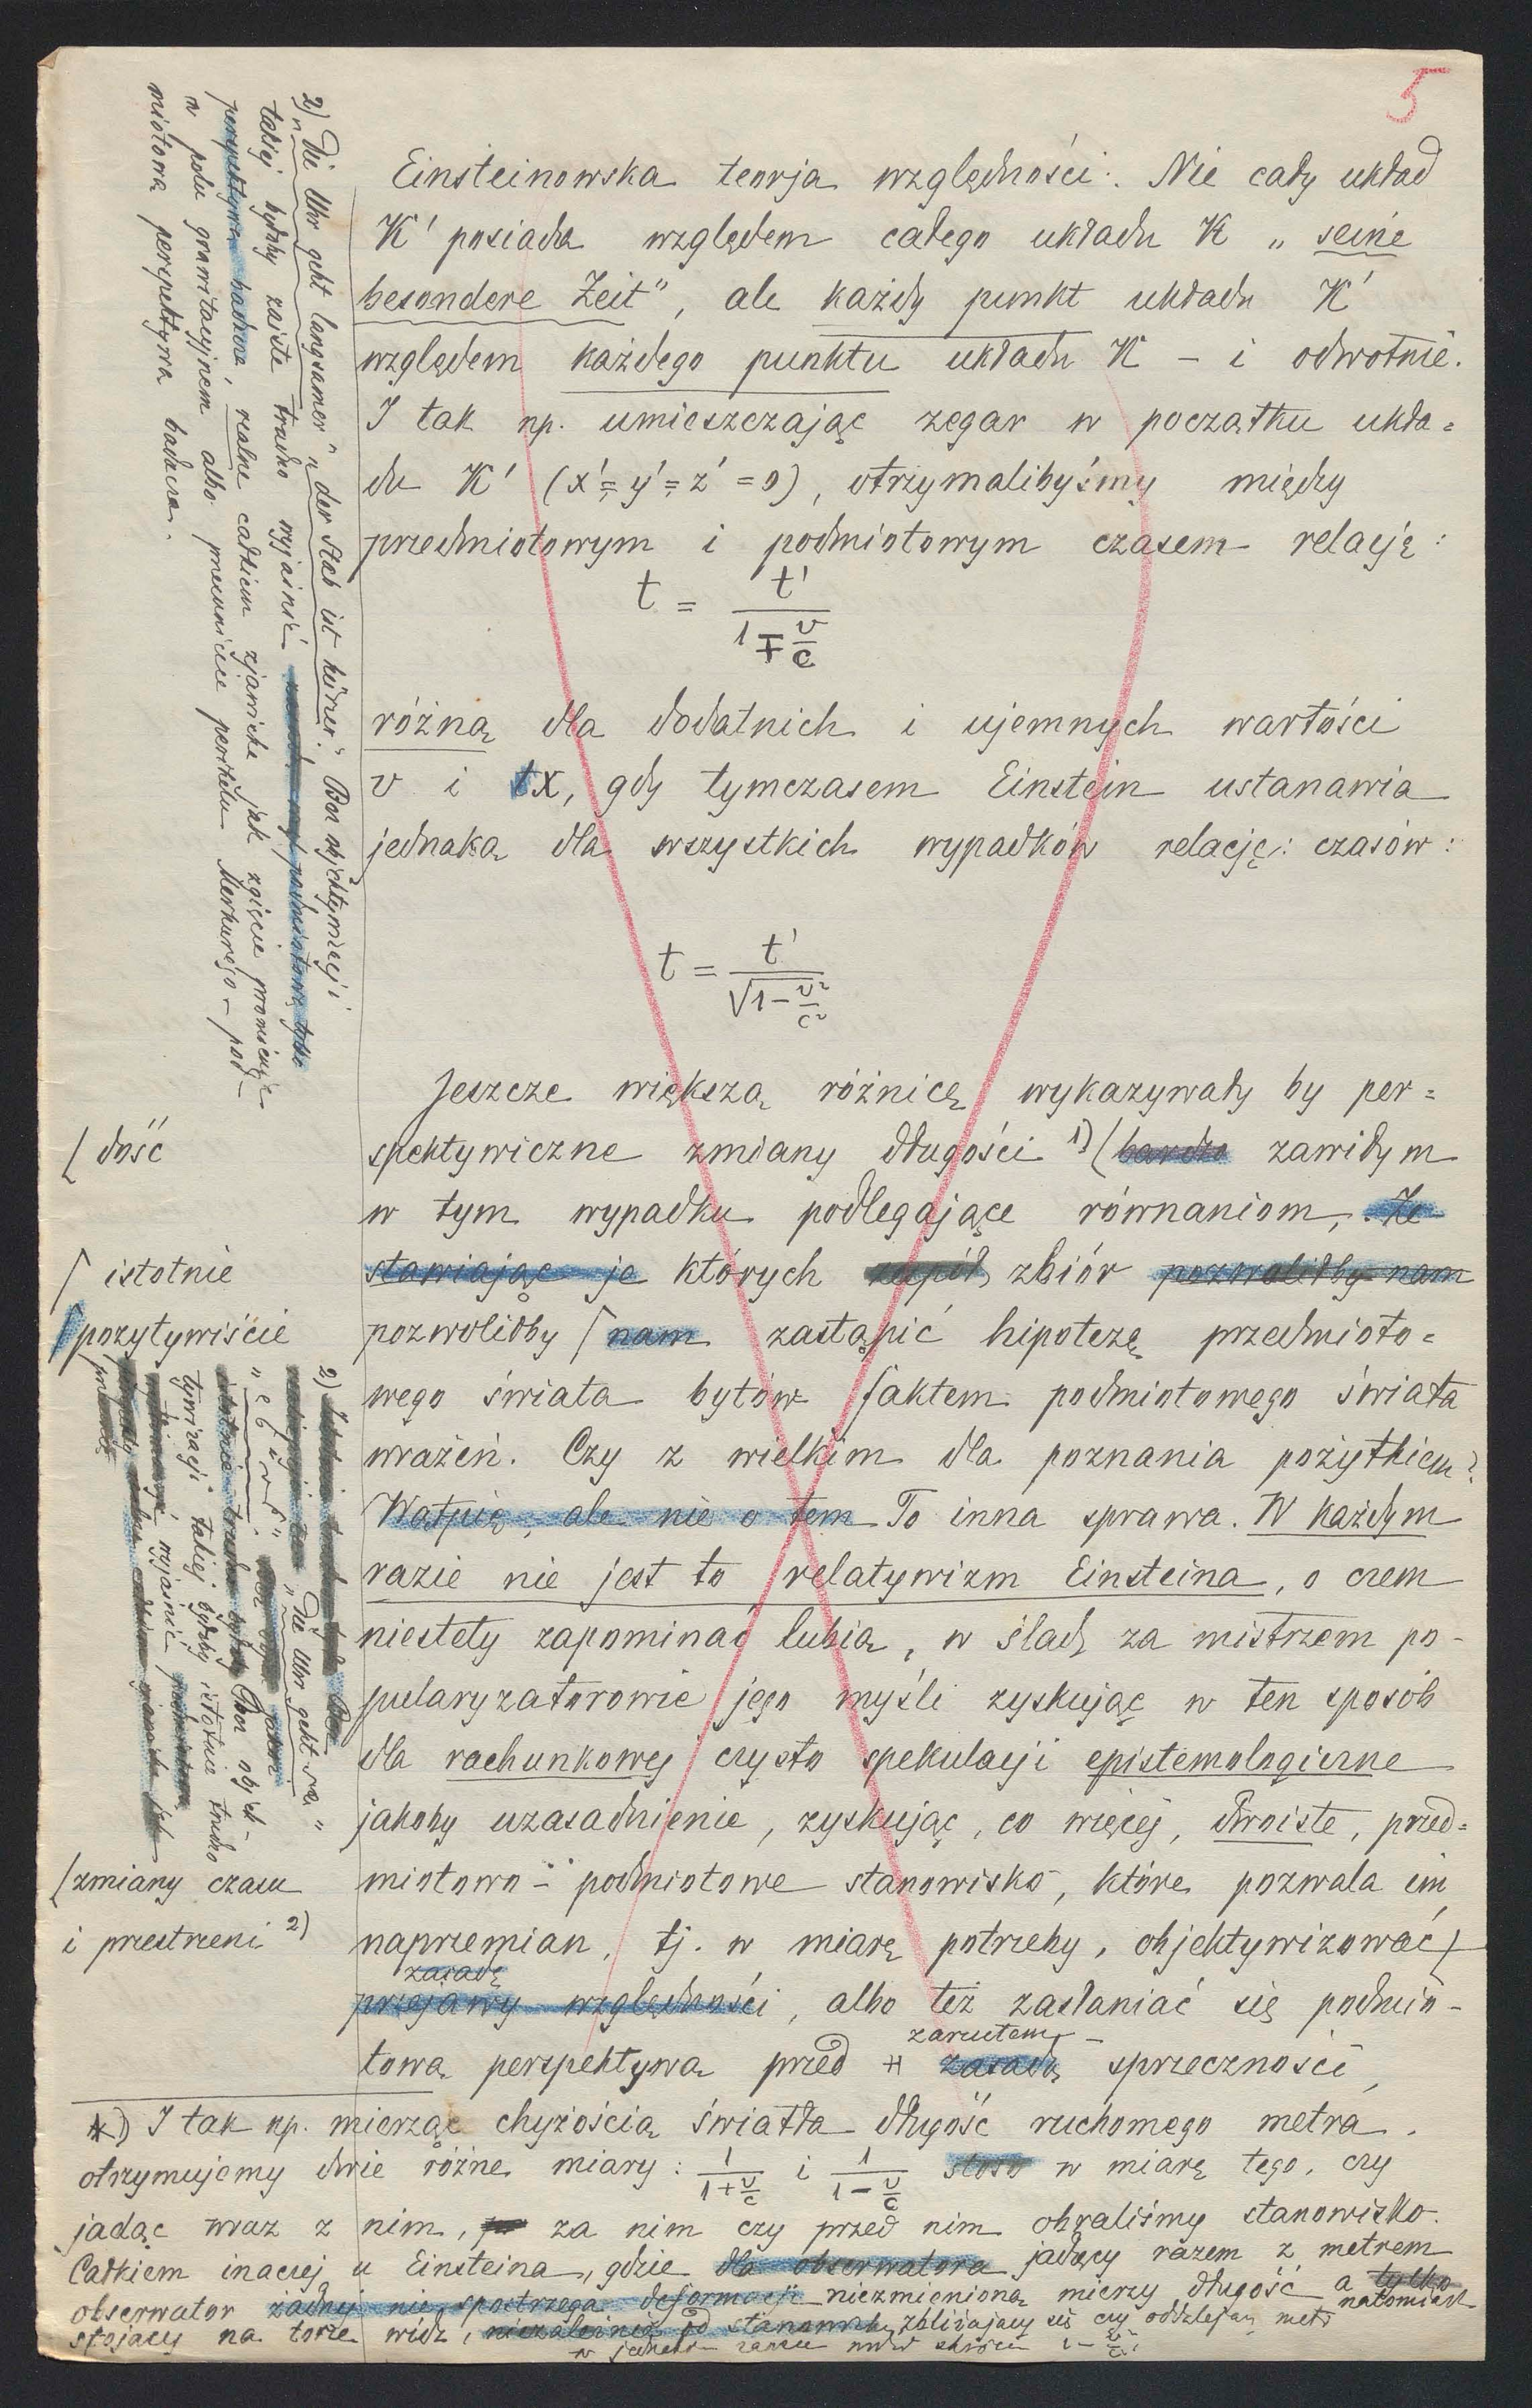 5
Einsteinowska teorja względności. Nie cały układ
K' posiada względem całego układu K „seine
besondere Zeit", ale każdy punkt układu K'
względem każdego punktu układu K – i odwrotnie.
I tak np. umieszczając zegar w początku ukła=
du K' (x'=y'=z'=0), otrzymalibyśmy między
przedmiotowym i podmiotowym czasem relację:
t = t' / 1 ∓ v/c
różną dla dodatnich i ujemnych wartości
v i x, gdy tymczasem Einstein ustanawia
jednaką dla wszystkich wypadków relację: czasów:
t = t' / √1 – v²/c²
Jeszcze większą różnicę wykazywały by per=
spektywiczne zmiany długości 1) (bardzo zawiłym
w tym wypadku podlegające równaniom, . Ze
stawiając je których zbiór pozwoliłby nam
pozwoliłby ⌈ nam zastąpić hipotezę przedmioto=
wego świata bytów faktem podmiotowego świata
wrażeń. Czy z wielkim dla poznania pożytkiem?
Wątpię, ale nie o tem To inna sprawa. W każdym
razie nie jest to relatywizm Einsteina, o czem
niestety zapominać lubią, w ślad za mistrzem po-
pularyzatorowie jego myśli zyskując w ten sposób
dla rachunkowej czysto spekulacji epistemologiczne
jakoby uzasadnienie, zyskując, co więcej, dwoiste, przed=
miotowo-podmiotowe stanowisko, które pozwala im
naprzemian, tj. w miarę potrzeby, objektywizować
zasadę
przejawy względności, albo też zasłaniać się podmio-
zarzutem
tową perspektywą przed zasadą sprzeczności,
*) I tak np. mierząc chyżością światła długość ruchomego metra.
otrzymujemy dwie różne miary: 1/1+v/c i 1/1–v/c w miarę tego, czy
jadąc wraz z nim, za nim czy przed nim obraliśmy stanowisko.
Całkiem inaczej u Einsteina, gdzie dla obserwatora jadący razem z metrem
obserwator żadnej nie spostrzega deformacji niezmienioną mierzy długość a tylko
natomiast
stojący na torze widz, niezależnie od stanowiska, zbliżający się czy oddalający metr
w jednakim
⌈ dość
⌈ istotnie
⌈ pozytywiście
⌈ zmiany czasu
i przestrzeni 2)
2) „Die Uhr geht langsamer" „der Stab ist kürzer." Bez objektywizacji
takiej byłoby zaiste trudno wyjaśnić podmiotową tylko
perspektywą badacza, realne całkiem zjawiska jak zgięcie promieni
w polu grawitacyjnem albo przesunięcie perihelu Merkurego – pod-
miotową perspektywą badacza.
2) Bez
„Die Uhr geht
Bez objek-
tywizacji takiej byłoby istotnie trudno
wyjaśnić